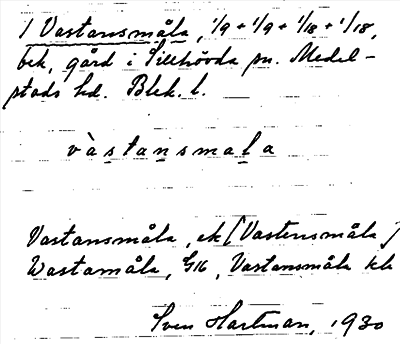 1 Vastansmåla, 1/9 + 1/9 + 1/18 + 1/18,
bek, gård i Tillhövda sn. Medel-
stads hd. Blek. l.
vàstansmala
Vastansmåla, ek [Vastensmåla]
Wastamåla, G16, Vastansmåla kb
Sven Hartman, 1930